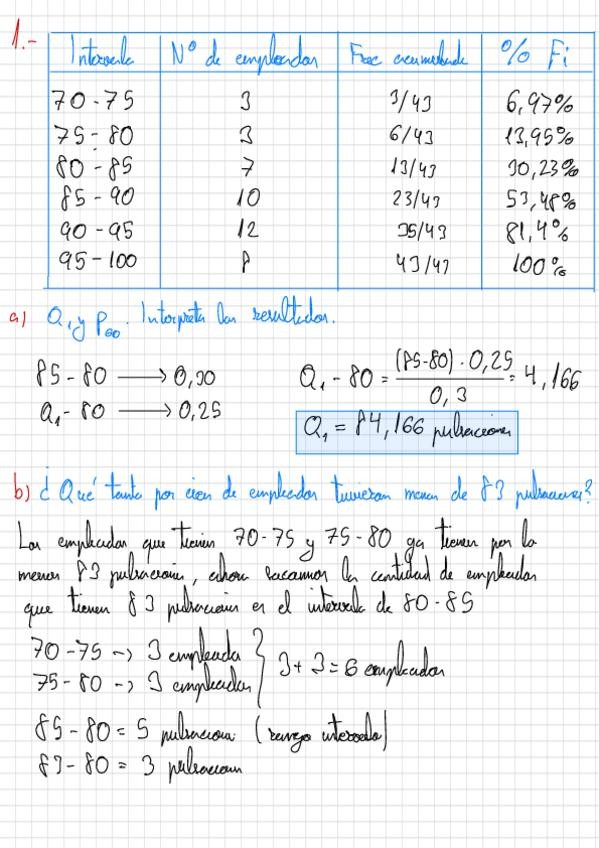 1.-
Intervalo Nº de empleados Frec acumulada % Fi
70-75 3 3/43 6,97%
75-80 3 6/43 13,95%
80-85 7 13/43 30,23%
85-90 10 23/43 53,48%
90-95 12 35/43 81,4%
95-100 8 43/43 100%
a) Q₁ y P₆₀. Interpreta los resultados.
85-80 → 0,30
Q₁-80 → 0,25
Q₁-80 = (85-80)·0,25 / 0,3 = 4,166
Q₁ = 84,166 pulsaciones
b) ¿Qué tanto por cien de empleados tuvieron menos de 83 pulsaciones?
Los empleados que tienen 70-75 y 75-80 ya tienen por lo
menos 83 pulsaciones, ahora sacamos la cantidad de empleados
que tienen 83 pulsaciones en el intervalo de 80-85
70-75 -> 3 empleados
75-80 -> 3 empleados } 3+3=6 empleados
85-80 = 5 pulsaciones (rango intervalo)
83-80 = 3 pulsaciones